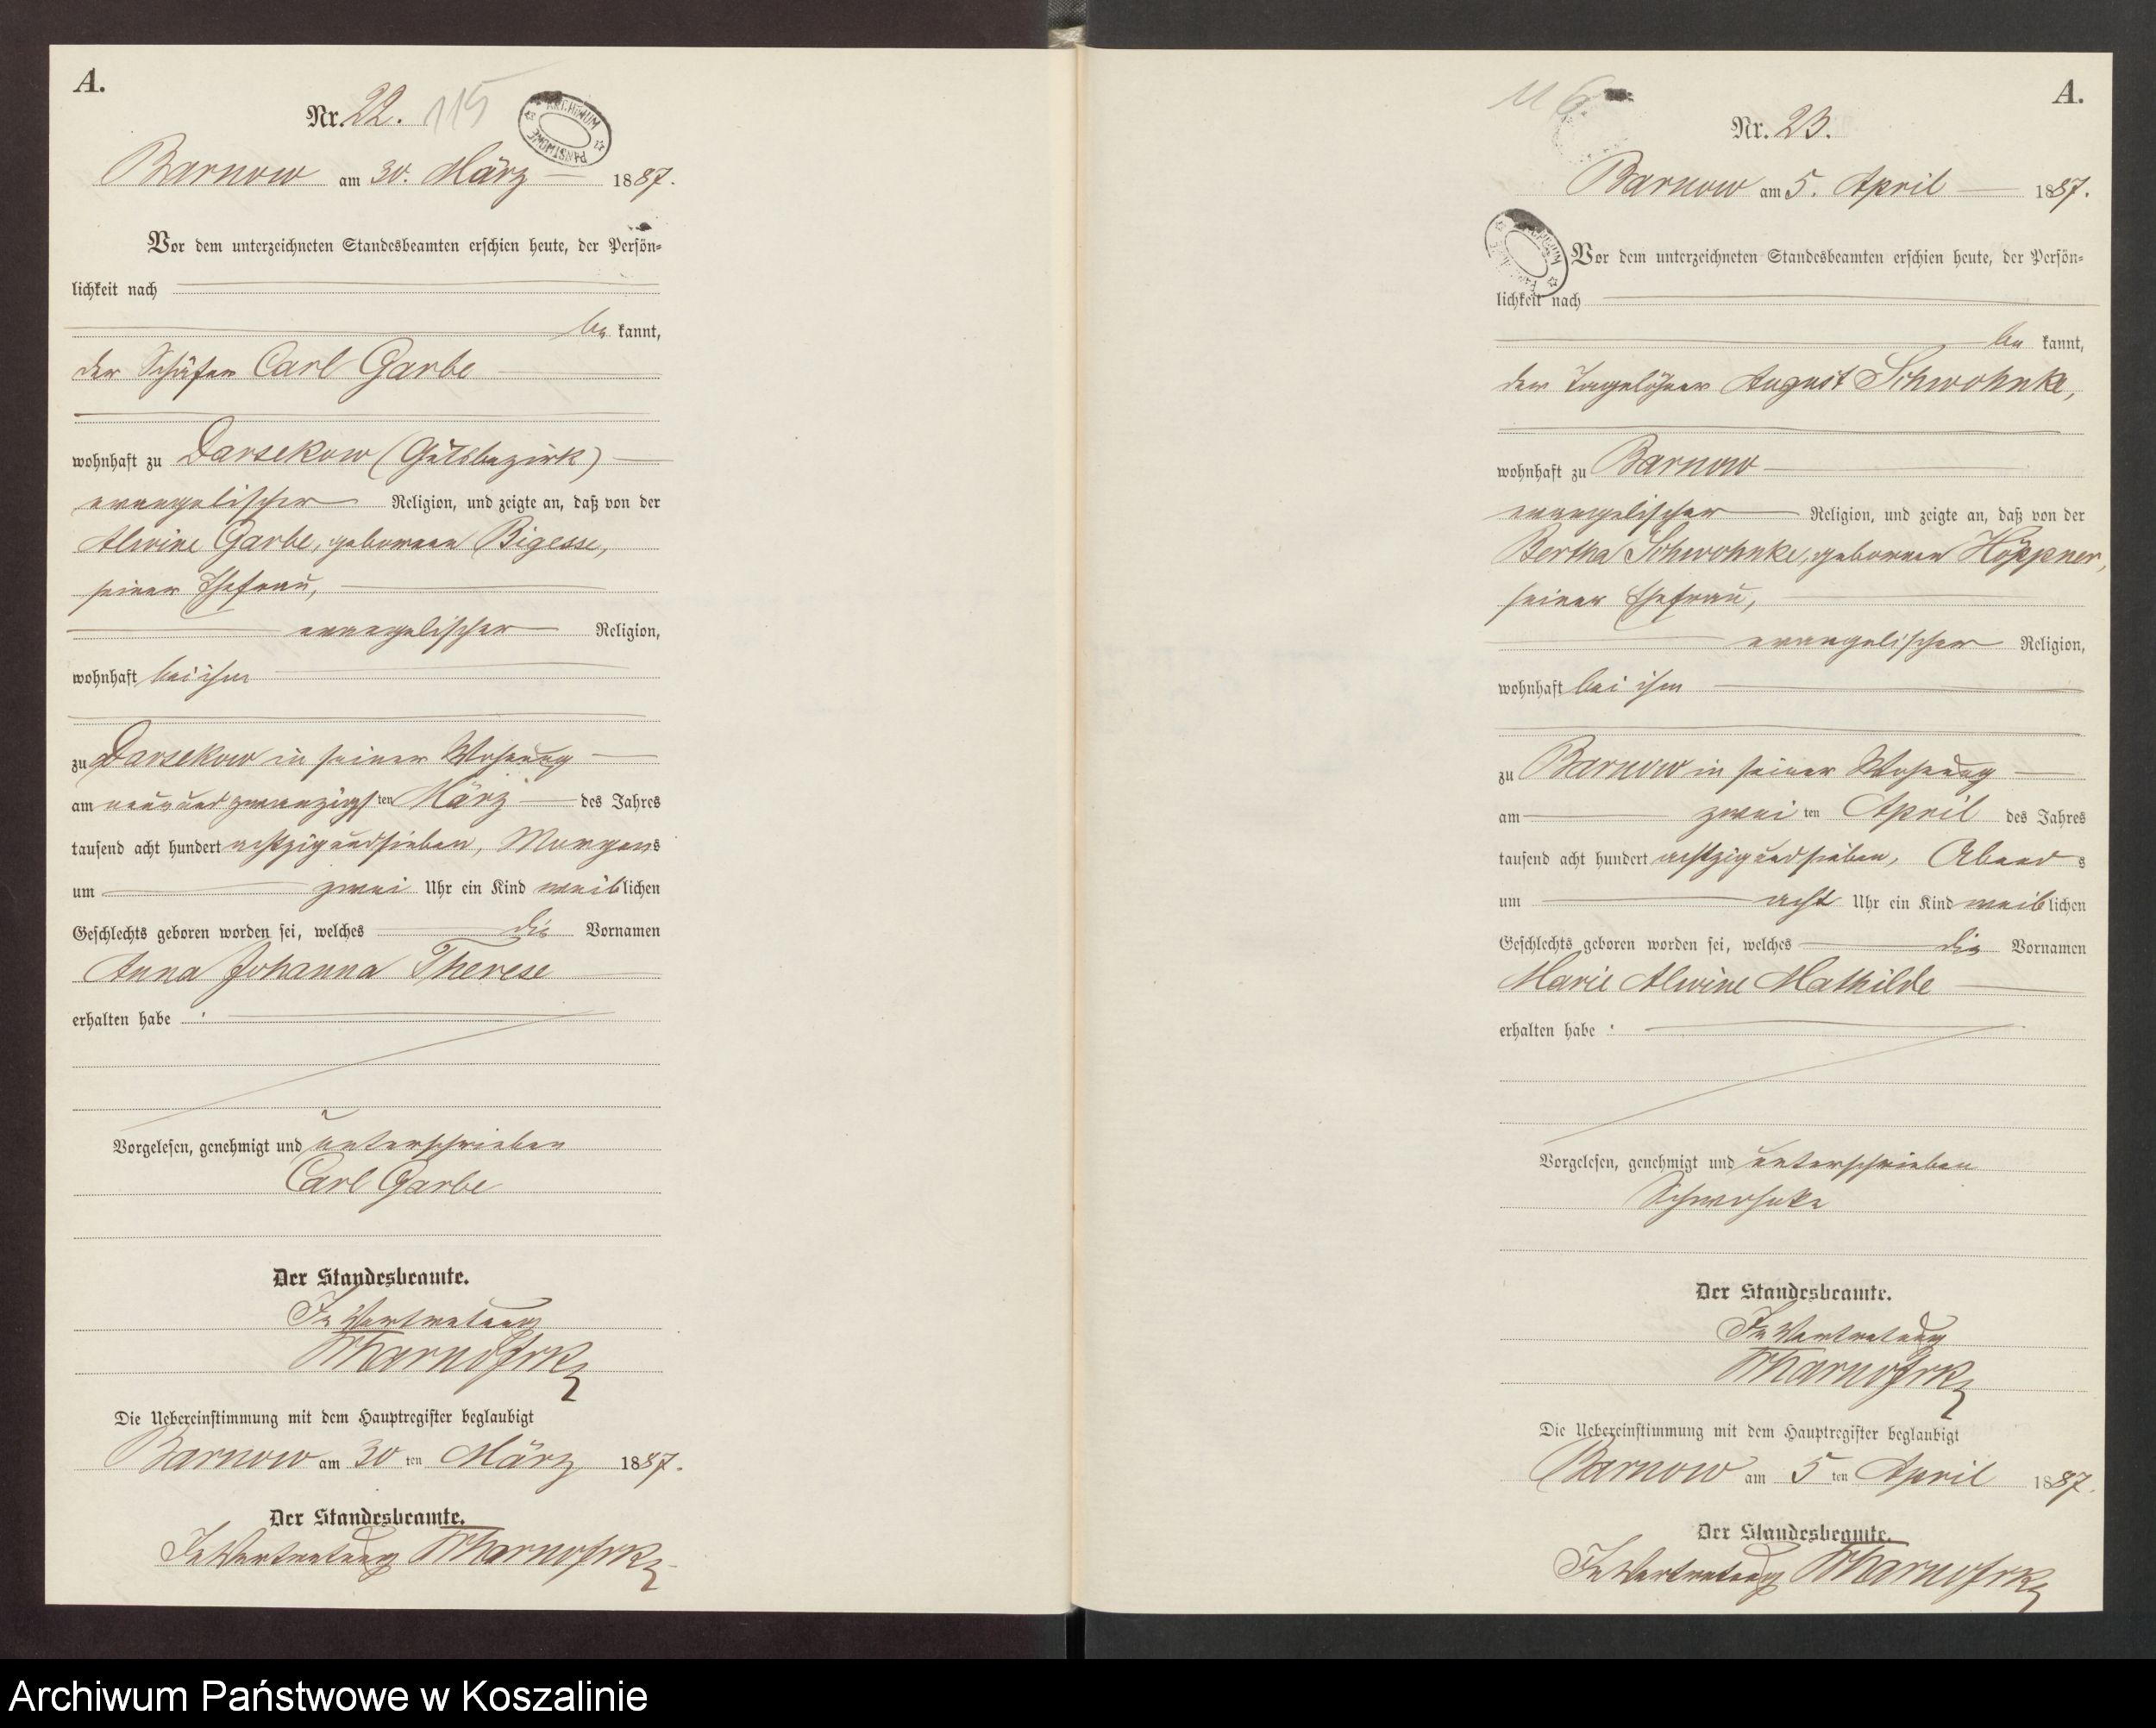 A.
Nr. 22. 115
ARCHIWUM PAŃSTWOWE
Barnow am 30. März 1887.
Vor dem unterzeichneten Standesbeamten erschien heute, der Persön-
lichkeit nach
be kannt,
der Schäfer Carl Garbe
wohnhaft zu Darsekow (Gutsbezirk)
evangelischer Religion, und zeigte an, daß von der
Alwine Garbe, geborenen Bigesse,
seiner Ehefrau,
evangelischer Religion,
wohnhaft bei ihm
zu Darsekow in seiner Wohnung
am neunundzwanzigsten März des Jahres
tausend acht hundert achtzigundsieben, Morgens
um zwei Uhr ein Kind weiblichen
Geschlechts geboren worden sei, welches die Vornamen
Anna Johanna Therese
erhalten habe .
Vorgelesen, genehmigt und unterschrieben
Carl Garbe
Der Standesbeamte.
In Vertretung
Die Uebereinstimmung mit dem Hauptregister beglaubigt
Barnow am 30 ten März 1887.
Der Standesbeamte.
In Vertretung
116
A.
Nr. 23.
Barnow am 5. April 1887.
Vor dem unterzeichneten Standesbeamten erschien heute, der Persön-
lichkeit nach
be kannt,
der Tagelöhner August Schwohnke,
wohnhaft zu Barnow
evangelischer Religion, und zeigte an, daß von der
Bertha Schwohnke, geborenen Höppner,
seiner Ehefrau,
evangelischer Religion,
wohnhaft bei ihm
zu Barnow in seiner Wohnung
am zwei ten April des Jahres
tausend acht hundert achtzigundsieben, Abends
um acht Uhr ein Kind weiblichen
Geschlechts geboren worden sei, welches die Vornamen
Marie Alwine Mathilde
erhalten habe .
Vorgelesen, genehmigt und unterschrieben
Schwohnke
Der Standesbeamte.
In Vertretung
Die Uebereinstimmung mit dem Hauptregister beglaubigt
Barnow am 5 ten April 1887.
Der Standesbeamte.
In Vertretung
Archiwum Państwowe w Koszalinie